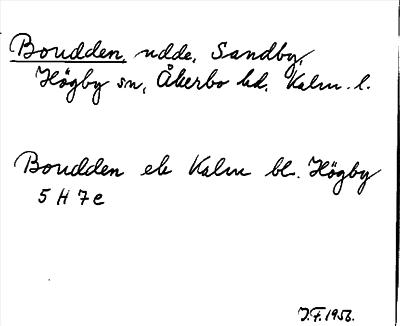 Boudden, udde, Sandby,
Högby sn, Åkerbo hd. Kalm. l.
Boudden ek Kalm bl. Högby
5 H 7 e
J.F. 1956.